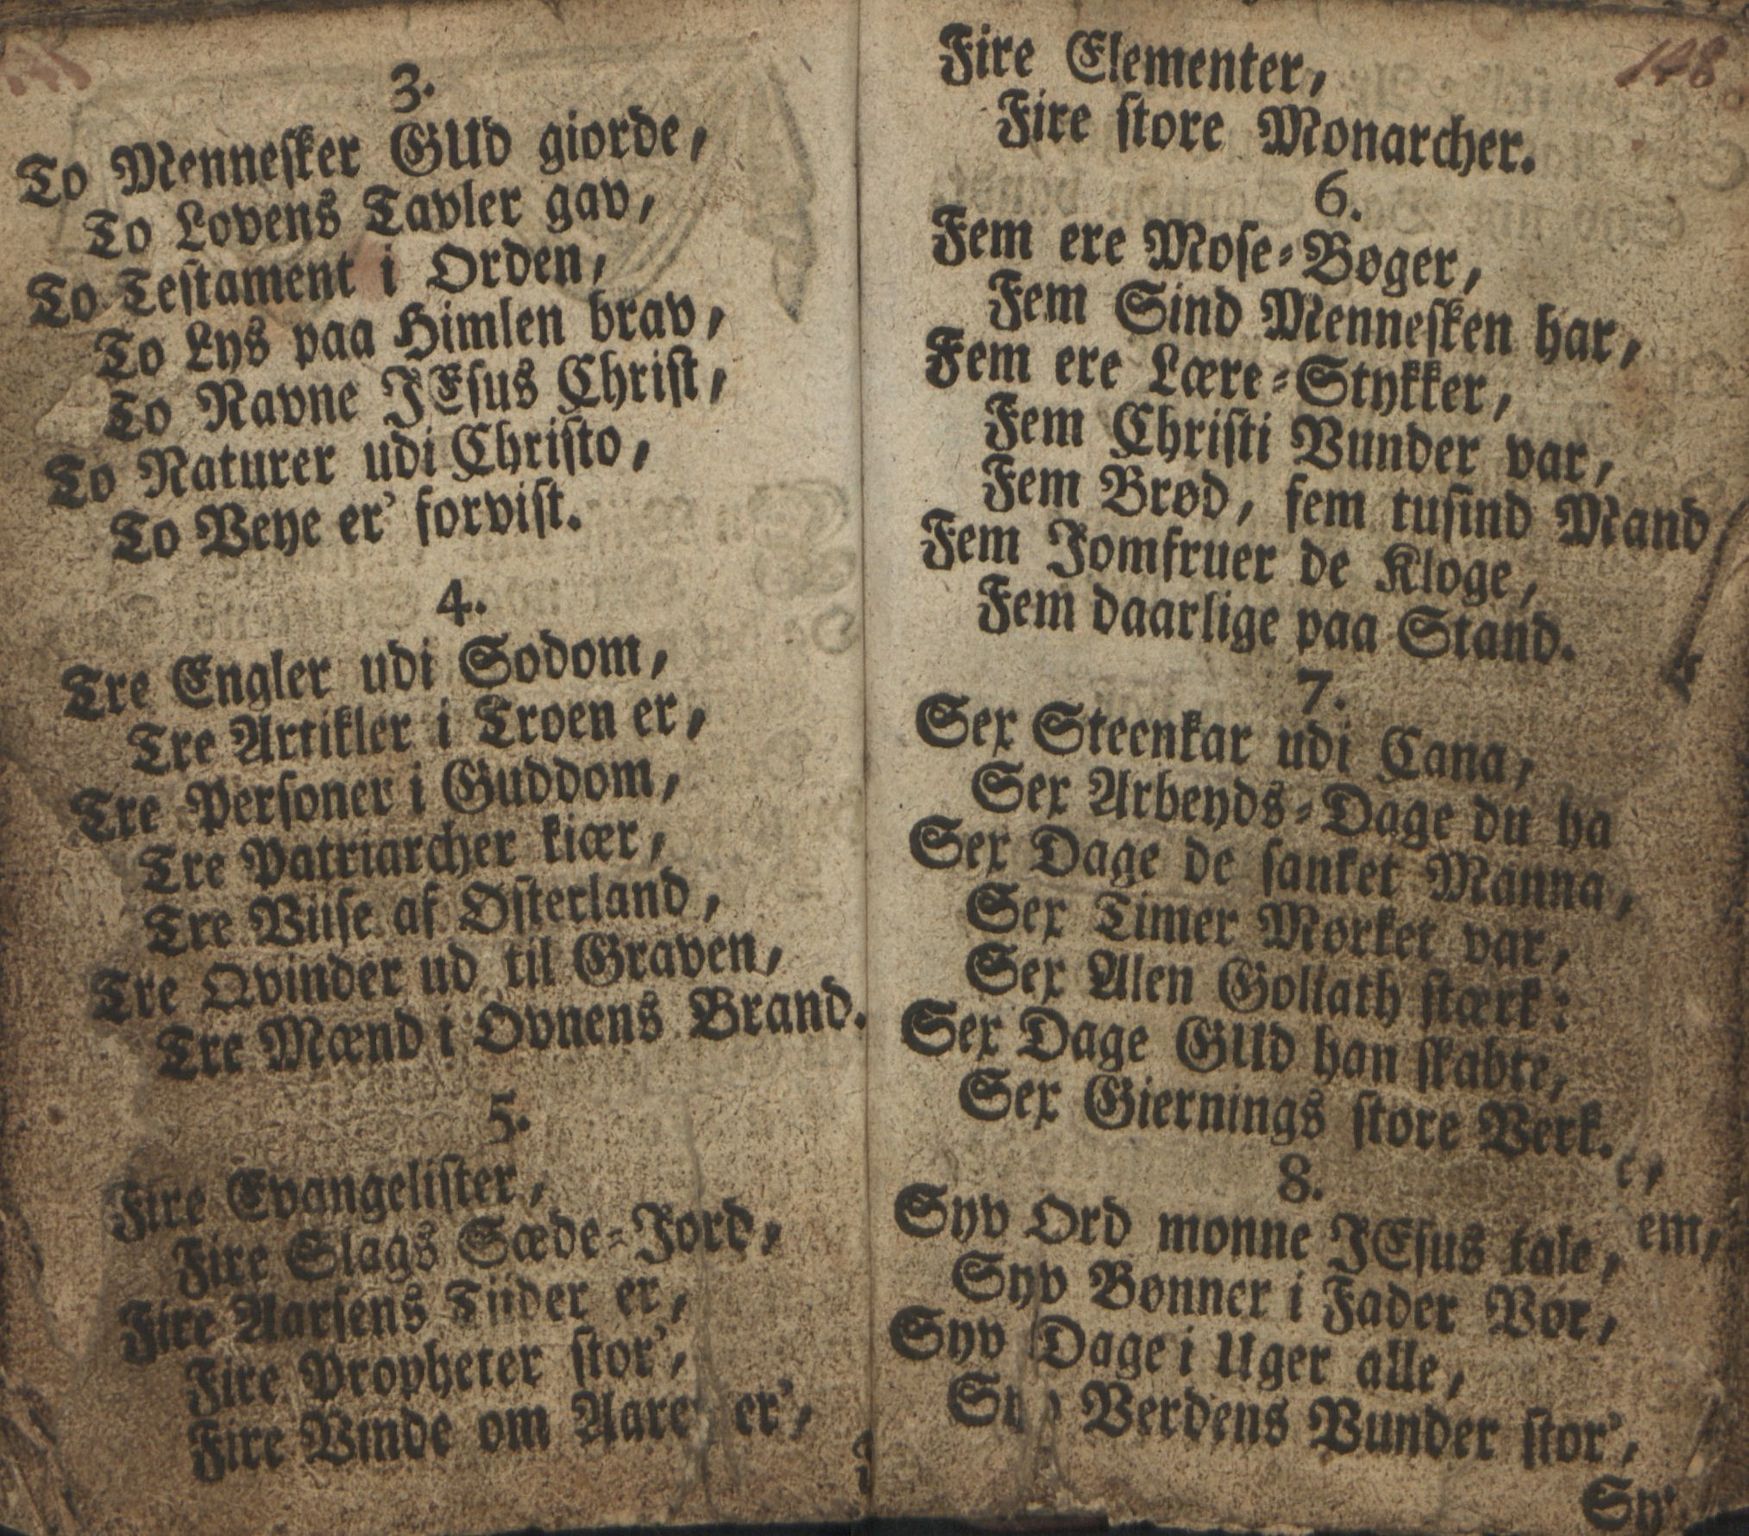 3.
To Mennesker GUd giorde,
To Lovens Tavler gav,
To Testament i Orden,
To Lys paa Himlen brav,
To Navne JEsus Christ,
To Naturer udi Christo,
To Veye er' forvist.
4.
Tre Engler udi Sodom,
Tre Artikler i Troen er,
Tre Personer i Guddom,
Tre Patriarcher kiær,
Tre Viise af Østerland,
Tre Qvinder ud til Graven,
Tre Mænd i Ovnens Brand.
5.
Fire Evangelister,
Fire Slags Sæde-Jord,
Fire Aarsens Tiider er,
Fire Propheter stor',
Fire Vinde om Aaret er',
148
Fire Elementer,
Fire store Monarcher.
6.
Fem ere Mose-Bøger,
Fem Sind Mennesken har,
Fem ere Lære-Stykker,
Fem Christi Vunder var,
Fem Brød, fem tusind Mand
Fem Jomfruer de Kloge,
Fem daarlige paa Stand.
7.
Sex Steenkar udi Cana,
Sex Arbeyds-Dage du ha
Sex Dage de sanket Manna,
Sex Timer Mørket var,
Sex Alen Goliath stærk:
Sex Dage GUd han skabte,
Sex Giernings store Verk.
8.
Syv Ord monne JEsus tale,
em,
Syv Bønner i Fader Vor,
Syv Dage i Uger alle,
Syv Verdens Vunder stor',
Sy